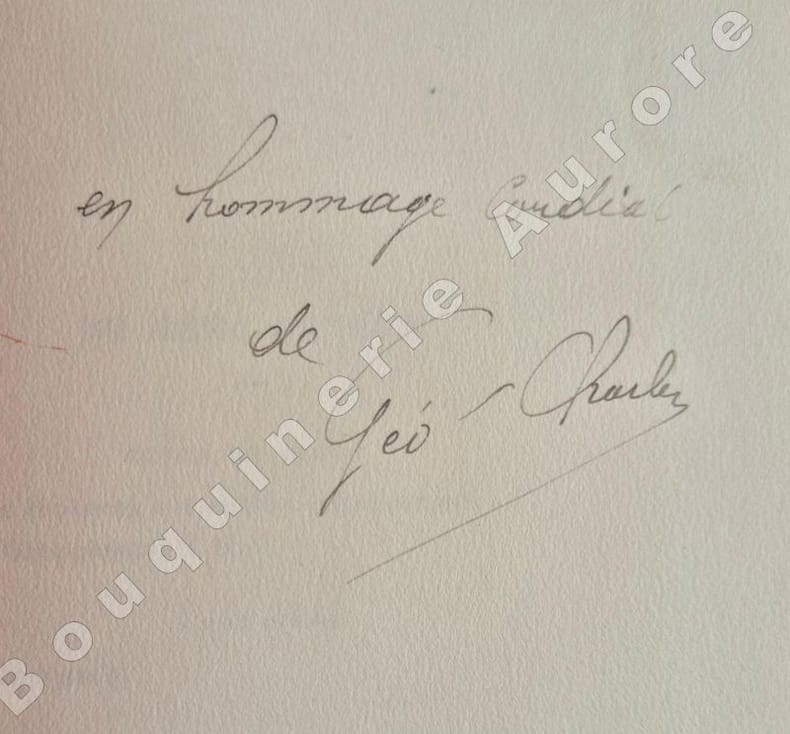 en hommage Cordial
de
Géo-Charles
Bouquinerie Aurore